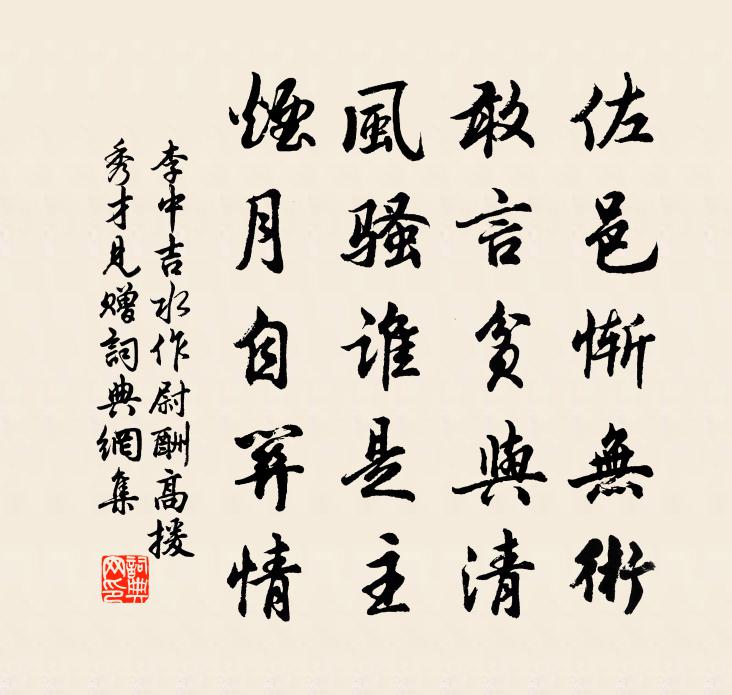 佐邑慚無術
敢言貧與清
風騷誰是主
煙月自關情
李中吉水作尉酬高援
秀才見贈詞典網集
詞典
网印